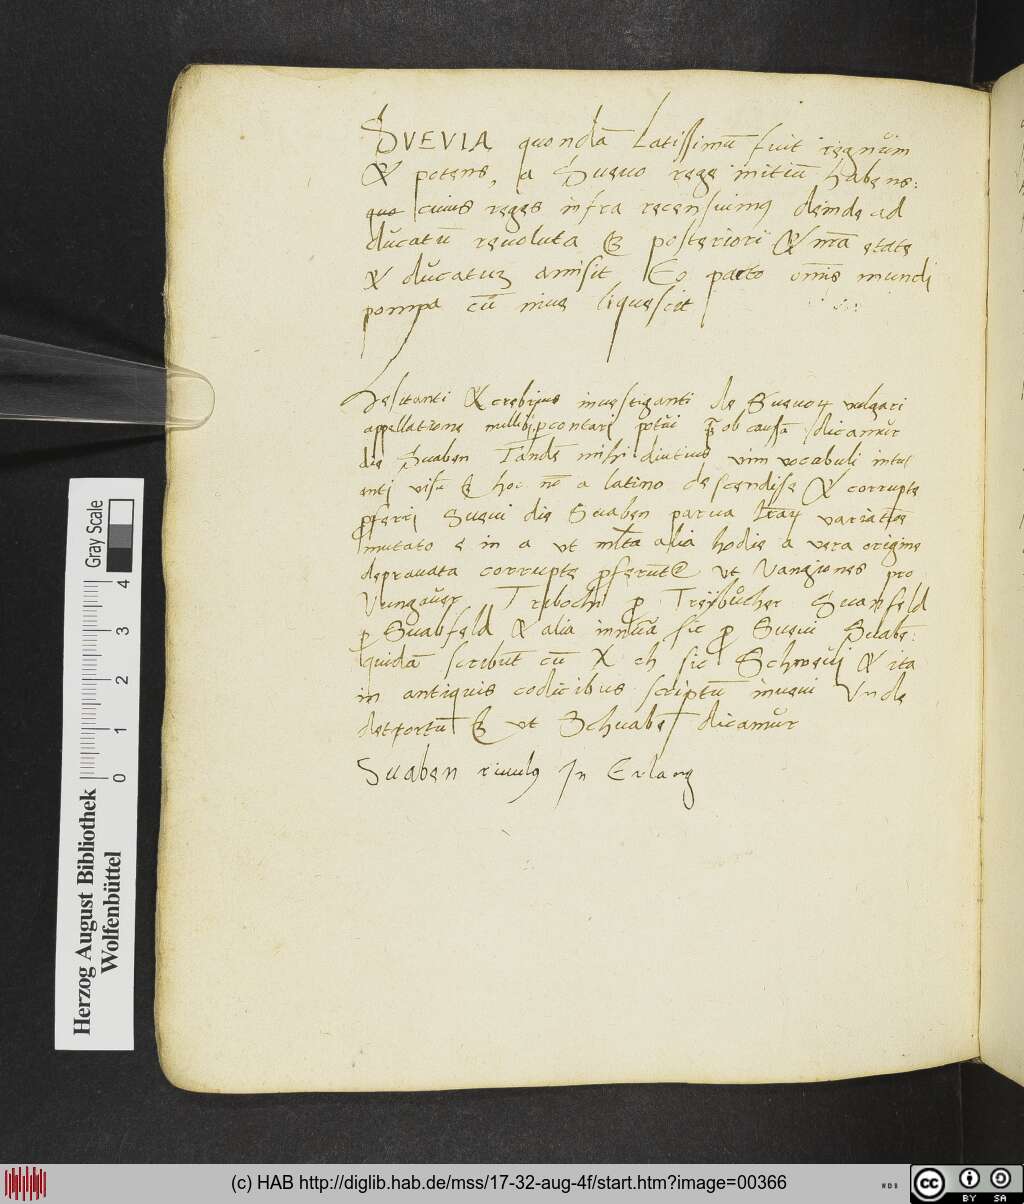 SVEVIA quondā Latissimū fuit regnum
& potens, a Sueuo rege initiū habens:
quo cuius reges infra recensuimꝰ deinde ad
ducatū reuoluta posteriori & nr̄a etate
& ducatum amisit Eo pacto om̄is mundi
pompa cū niue liquescit
Hesitanti & crebrius inuestiganti de Sueuoꝝ vulgari
appellatione nullibi percontari potui ob causā dicamur
die Suaben Tandē mihi diutius vim vocabuli intu
enti visū hoc nō a latino descendisse & corrupte
proferri Sueui die Suaben parua lr̄aꝝ variatiōe
mutato e in a vt ml̄ta alia hodie a vera origine
deprauata corrupte proferunt vt Vangiones pro
Wungauer Tribochi pro Treybucher Suanfeld
pro Suabfeld & alia innūa sic pro Sueui Suabē:
quidā scribūt cū X ch sic Schweui & ita
in antiquis codicibus scriptū inueni Vnde
detortū vt Schuabē dicamur
Suaben riuulꝰ In Erlang
Herzog August Bibliothek
Wolfenbüttel
Gray Scale
0 1 2 3 4
(c) HAB http://diglib.hab.de/mss/17-32-aug-4f/start.htm?image=00366
WDB
cc BY SA